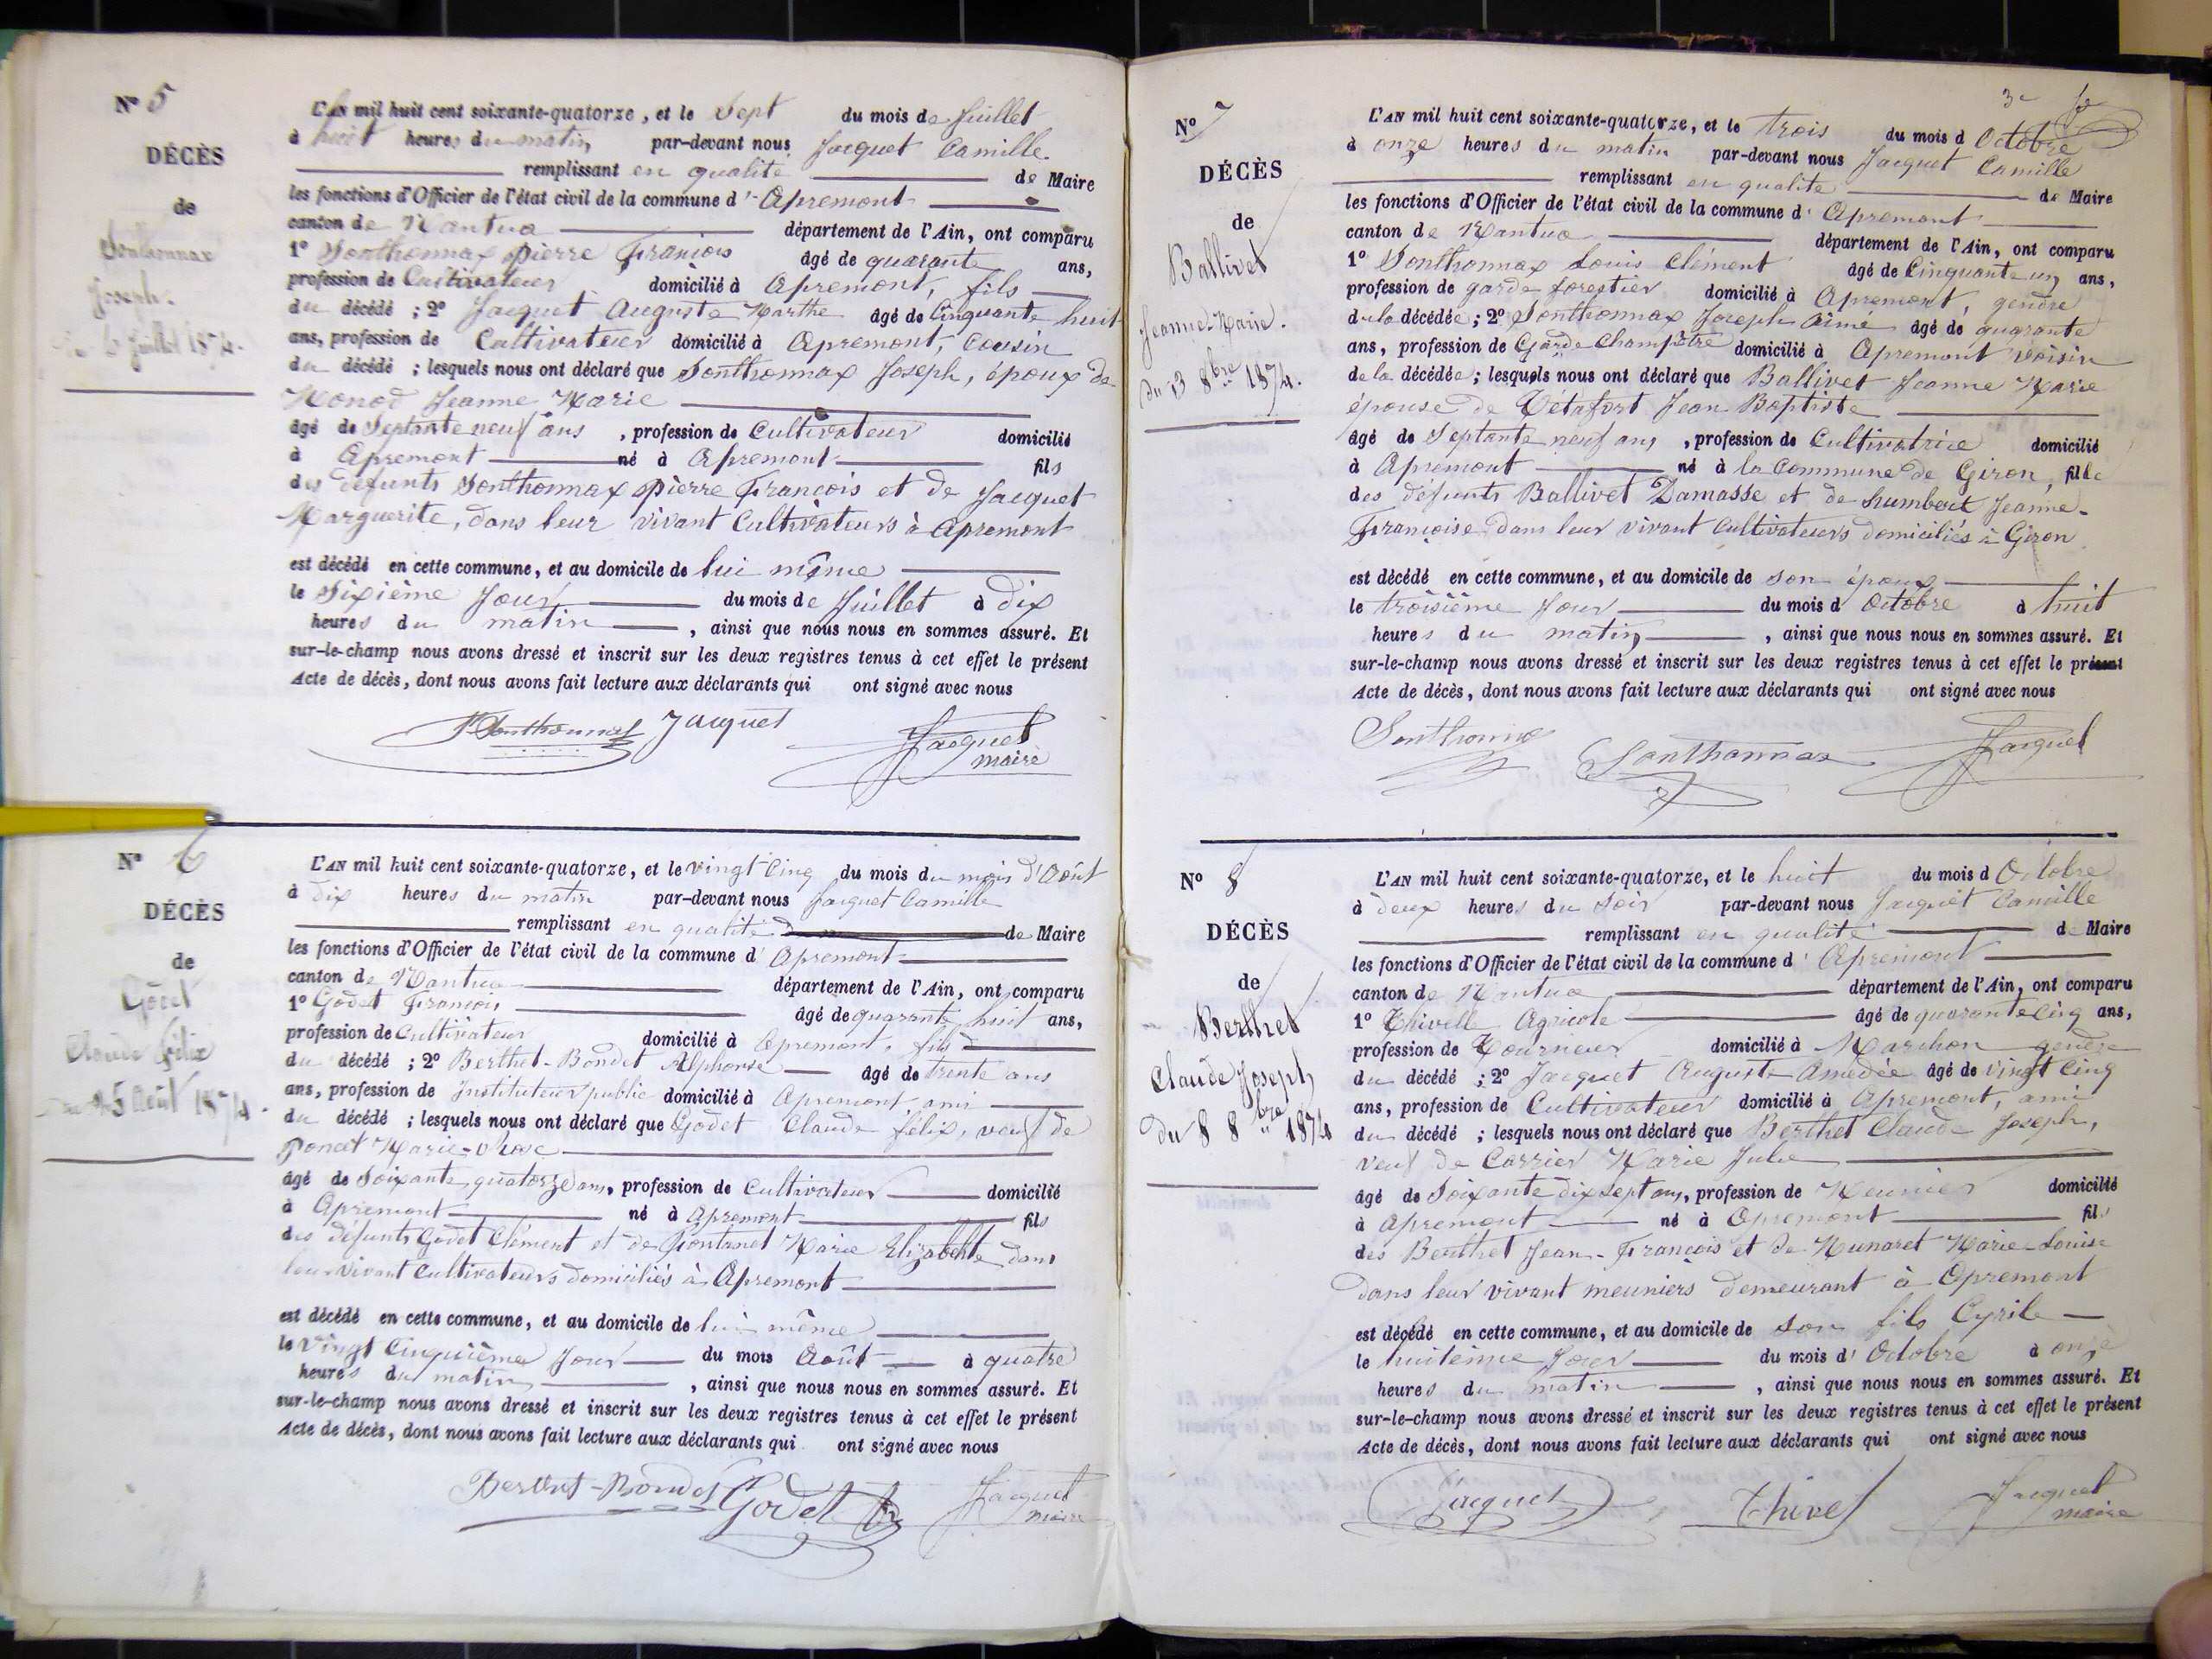 N° 5
DÉCÈS
de
Sonthonnax
Joseph.
Juillet 1874.
L'AN mil huit cent soixante-quatorze, et le Sept du mois de Juillet
à huit heures du matin par-devant nous Jacquet Camille
remplissant en qualité de Maire
les fonctions d'Officier de l'état civil de la commune d' Apremont
canton de Nantua département de l'Ain, ont comparu
1° Sonthonnax Pierre François âgé de quarante ans,
profession de Cultivateur domicilié à Apremont, fils
du décédé ; 2° Jacquet Auguste Marthe âgé de Cinquante huit
ans, profession de Cultivateur domicilié à Apremont, Cousin
du décédé ; lesquels nous ont déclaré que Sonthonnax Joseph, époux de
Monod Jeanne Marie
âgé de Septante neuf ans, profession de Cultivateur domicilié
à Apremont né à Apremont fils
des défunts Sonthonnax Pierre François et de Jacquet
Marguerite, dans leur vivant Cultivateurs à Apremont
est décédé en cette commune, et au domicile de lui même
le Sixième Jour du mois de Juillet à dix
heures du matin, ainsi que nous nous en sommes assuré. Et
sur-le-champ nous avons dressé et inscrit sur les deux registres tenus à cet effet le présent
Acte de décès, dont nous avons fait lecture aux déclarants qui ont signé avec nous
Sonthonnax Jacquet Jacquet
maire
N° 6
DÉCÈS
de
Godet
Claude félix
25 Août 1874.
L'AN mil huit cent soixante-quatorze, et le vingt Cinq du mois du mois d'Août
à dix heures du matin par-devant nous Jacquet Camille
remplissant en qualité de Maire
les fonctions d'Officier de l'état civil de la commune d' Apremont
canton de Nantua département de l'Ain, ont comparu
1° Godet François âgé de quarante huit ans,
profession de Cultivateur domicilié à Apremont, fils
du décédé ; 2° Berthet-Bondet Alphonse âgé de trente ans
ans, profession de Instituteur public domicilié à Apremont, ami
du décédé ; lesquels nous ont déclaré que Godet Claude félix, veuf de
Poncet Marie-Rose
âgé de Soixante quatorze ans, profession de Cultivateur domicilié
à Apremont né à Apremont fils
des défunts Godet Clément et de Fontanet Marie Elizabethte dans
leur vivant Cultivateurs domiciliés à Apremont
est décédé en cette commune, et au domicile de lui même
le Vingt Cinquième Jour du mois Août à quatre
heures du matin, ainsi que nous nous en sommes assuré. Et
sur-le-champ nous avons dressé et inscrit sur les deux registres tenus à cet effet le présent
Acte de décès, dont nous avons fait lecture aux déclarants qui ont signé avec nous
Berthet-Bondet Godet Jacquet
maire
N° 7
DÉCÈS
de
Ballivet
Jeanne-Marie.
du 3 8bre 1874.
L'AN mil huit cent soixante-quatorze, et le trois du mois d Octobre
à onze heures du matin par-devant nous Jacquet Camille
remplissant en qualité de Maire
les fonctions d'Officier de l'état civil de la commune d' Apremont
canton de Nantua département de l'Ain, ont comparu
1° Sonthonnax Louis Clément âgé de Cinquante un ans,
profession de garde forestier domicilié à Apremont, gendre
de la décédée ; 2° Sonthonnax Joseph Aimé âgé de quarante
ans, profession de Garde Champêtre domicilié à Apremont voisin
de la décédée ; lesquels nous ont déclaré que Ballivet Jeanne Marie
épouse de Tétafort Jean Baptiste
âgé de Septante neuf ans, profession de Cultivatrice domicilié
à Apremont né à la Commune de Giron, fille
des défunts Ballivet Damasse et de humbert Jeanne-
Françoise dans leur vivant Cultivateurs domiciliés à Giron
est décédé en cette commune, et au domicile de son époux
le troisième Jour du mois d Octobre à huit
heures du matin, ainsi que nous nous en sommes assuré. Et
sur-le-champ nous avons dressé et inscrit sur les deux registres tenus à cet effet le présent
Acte de décès, dont nous avons fait lecture aux déclarants qui ont signé avec nous
Sonthonnax Sonthonnax Jacquet
N° 8
DÉCÈS
de
Berthet
Claude Joseph
du 8 8bre 1874
L'AN mil huit cent soixante-quatorze, et le huit du mois d Octobre
à deux heures du soir par-devant nous Jacquet Camille
remplissant en qualité de Maire
les fonctions d'Officier de l'état civil de la commune d' Apremont
canton de Nantua département de l'Ain, ont comparu
1° Thivelle Agricole âgé de quarante cinq ans,
profession de Tourneur domicilié à Marchon gendre
du décédé ; 2° Jacquet Auguste Amédée âgé de vingt Cinq
ans, profession de Cultivateur domicilié à Apremont, ami
du décédé ; lesquels nous ont déclaré que Berthet Claude Joseph,
veuf de Carrier Marie Julie
âgé de Soixante dix sept ans, profession de Meunier domicilié
à Apremont né à Apremont fils
des Berthet Jean-François et de Munaret Marie-Louise
dans leur vivant meuniers demeurant à Apremont
est décédé en cette commune, et au domicile de son fils Cyrile
le huitième Jour du mois d' Octobre à onze
heures du matin, ainsi que nous nous en sommes assuré. Et
sur-le-champ nous avons dressé et inscrit sur les deux registres tenus à cet effet le présent
Acte de décès, dont nous avons fait lecture aux déclarants qui ont signé avec nous
Jacquet Thivel Jacquet
maire